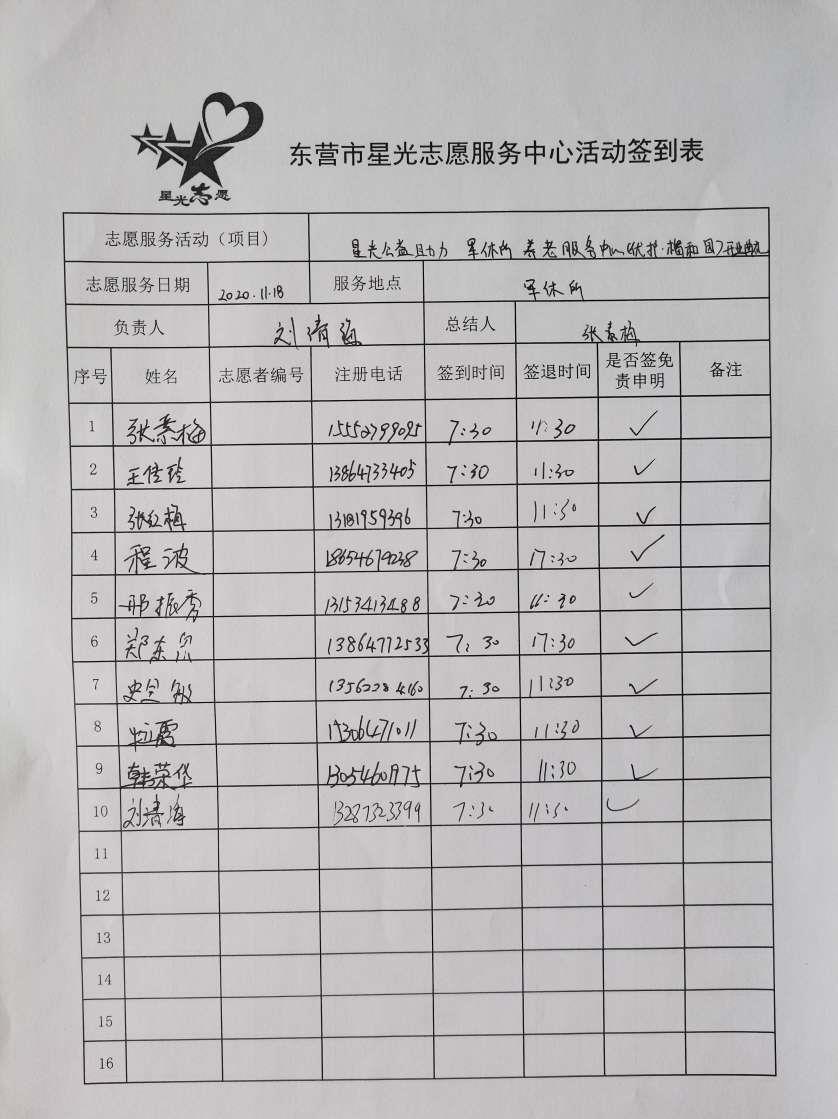 星光志愿
东营市星光志愿服务中心活动签到表
志愿服务活动（项目） 星光公益助力 军休所 养老服务中心
志愿服务日期 2020.11.18 服务地点 军休所
负责人 刘清海 总结人 张素梅
序号 姓名 志愿者编号 注册电话 签到时间 签退时间 是否签免责申明 备注
1 张素梅 15552799095 7:30 11:30 ✓
2 王佳玲 13864733405 7:30 11:30 ✓
3 张红梅 13181959396 7:30 11:30 ✓
4 程波 7:30 17:30 ✓
5 邢振秀 13153413488 7:30 11:30 ✓
6 郑东 13864772533 7:30 17:30 ✓
7 史 敏 7:30 11:30 ✓
8 7:30 11:30 ✓
9 韩荣华 7:30 11:30 ✓
10 刘清海 13287323399 7:30 11:30 ✓
11
12
13
14
15
16